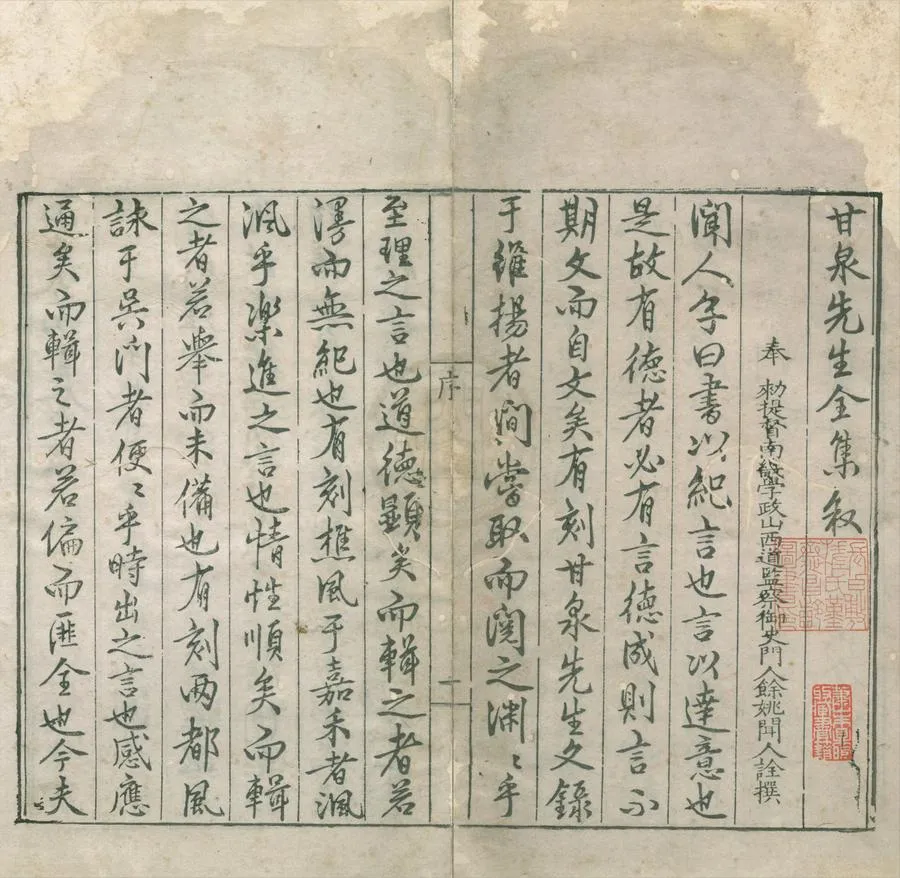 甘泉先生全集敘
奉 勑提督南畿學政山西道監察御史門人餘姚聞人詮撰
聞人子曰書以紀言也言以達意也
是故有德者必有言德成則言不
期文而自文矣有刻甘泉先生文錄
于維揚者間嘗取而閱之淵〻乎
至理之言也道德顯矣而輯之者若
漫而無紀也有刻樵風于嘉禾者渢
渢乎樂進之言也情性順矣而輯
之者若舉而未備也有刻兩都風
詠于吳門者便〻乎時出之言也感應
通矣而輯之者若偏而匪全也今夫
序
一